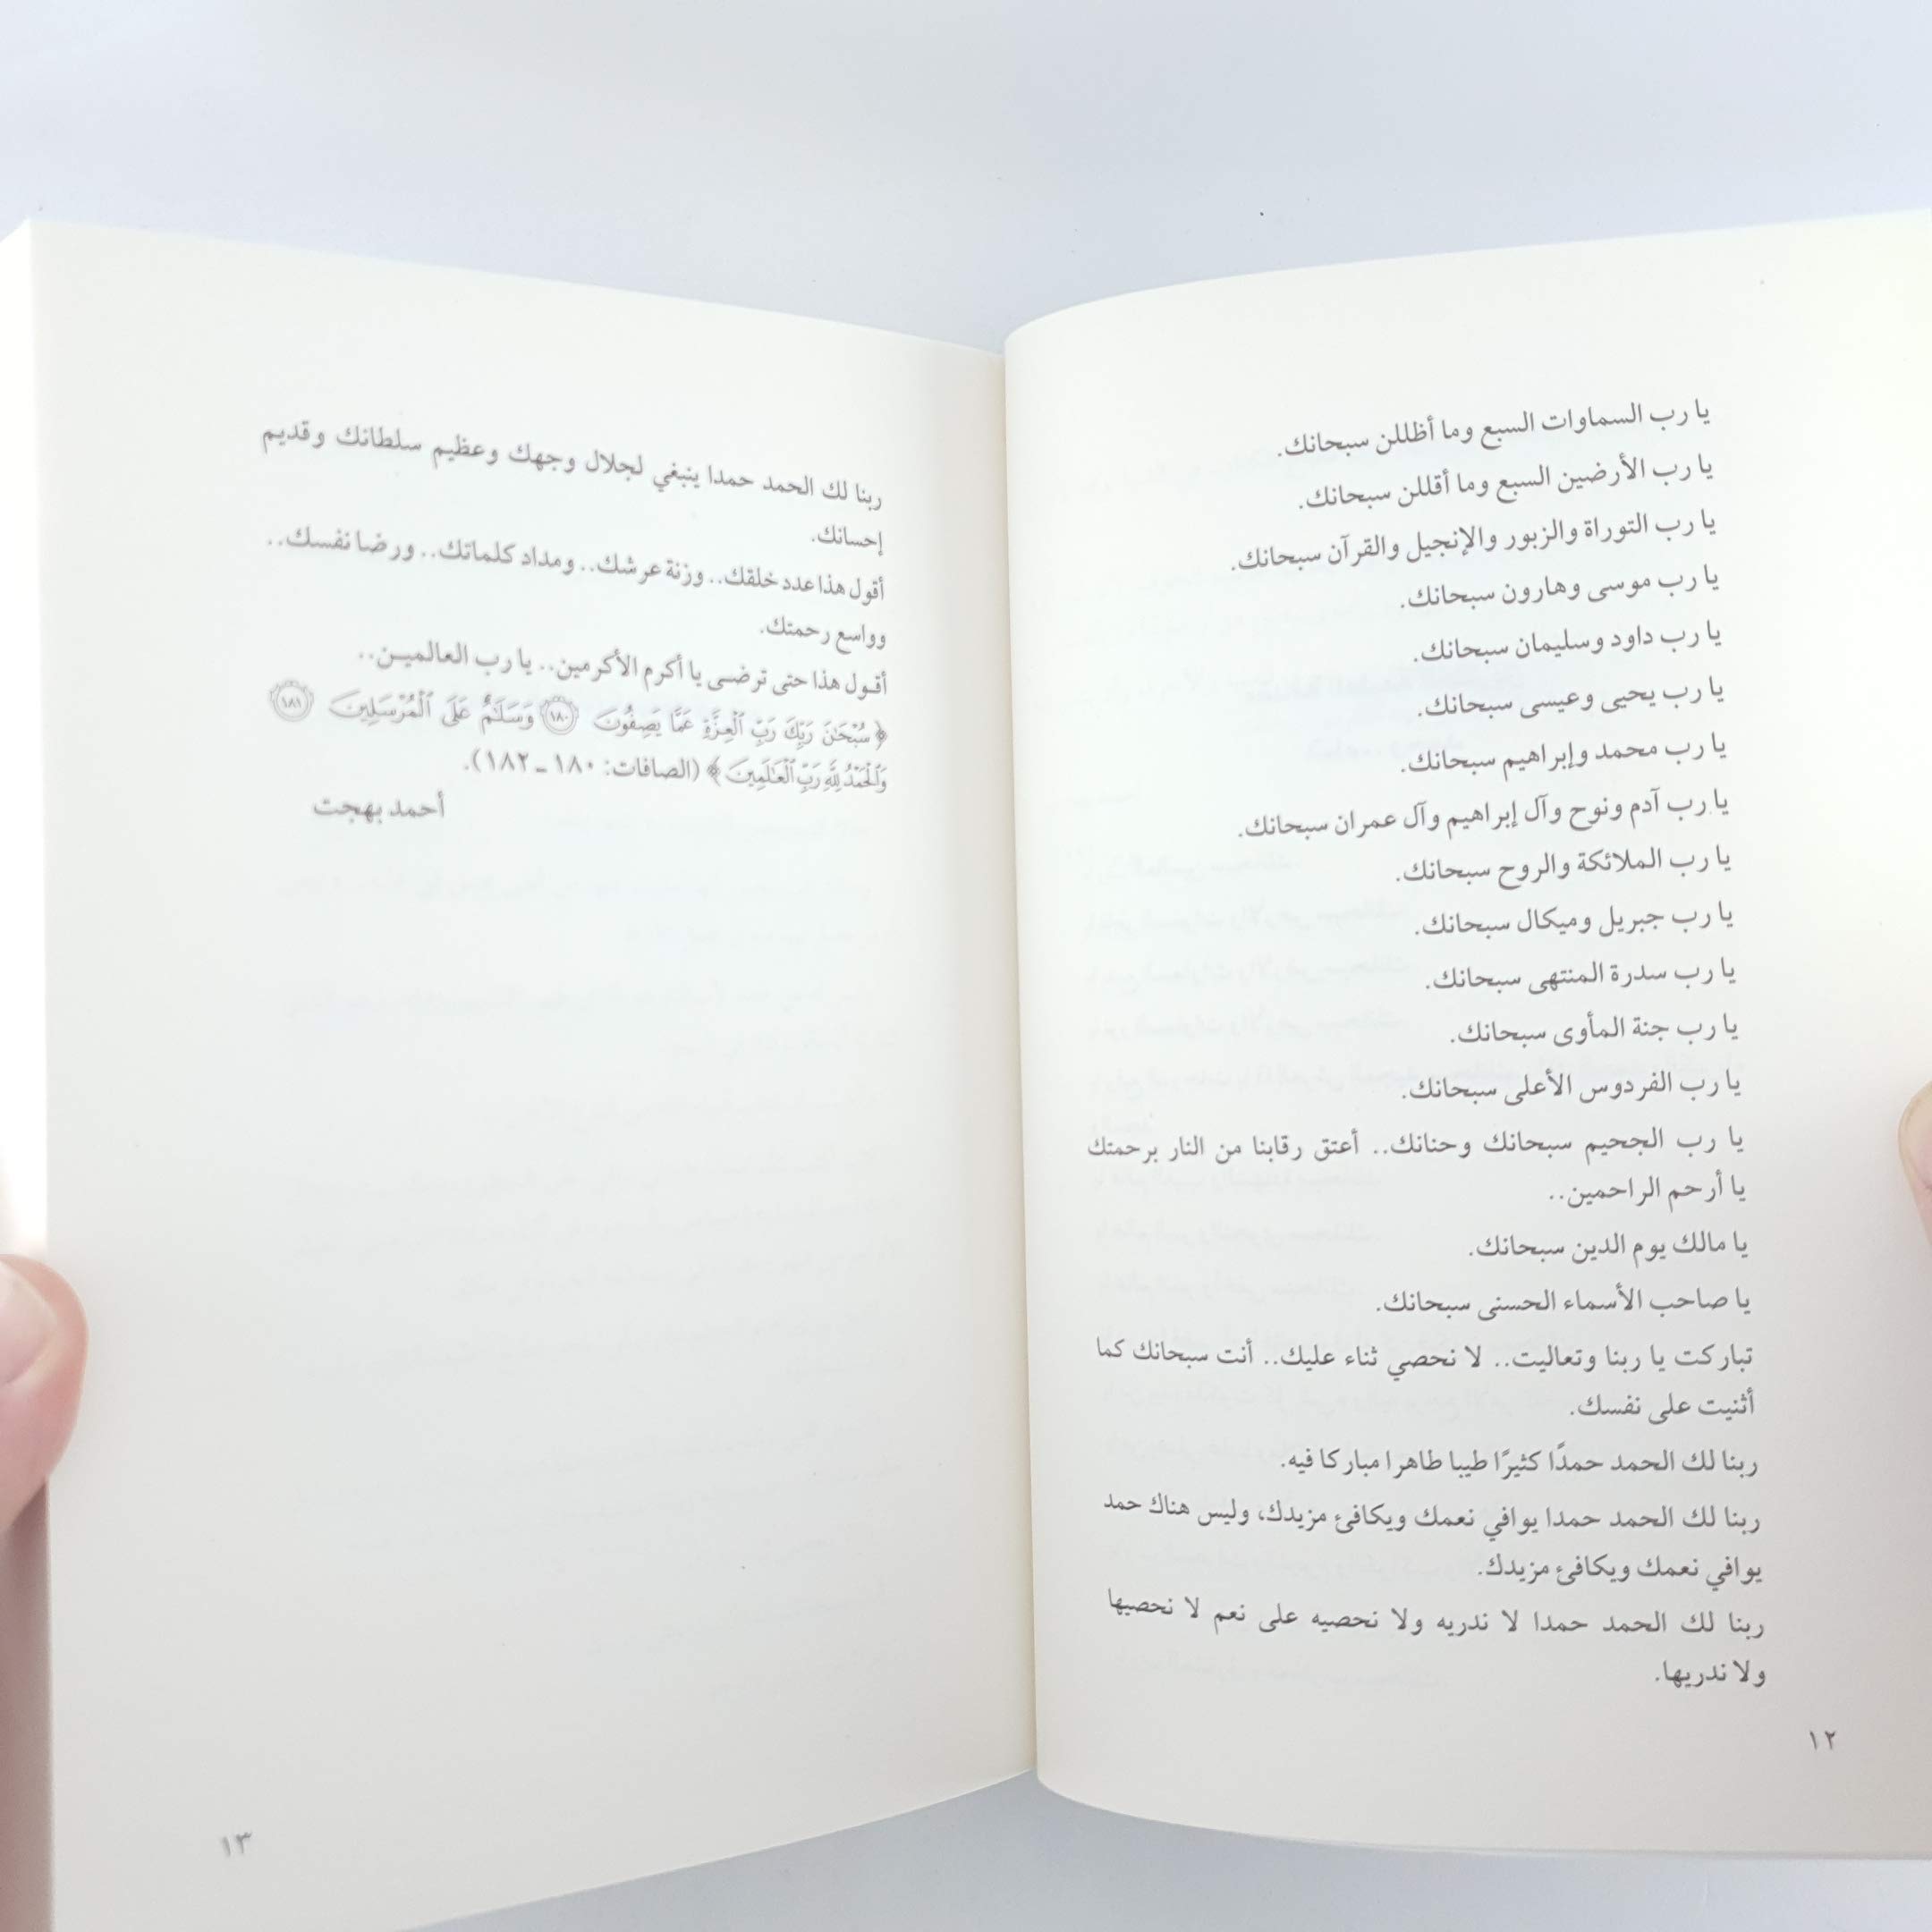 يا رب السماوات السبع وما أظللن سبحانك.
يا رب الأرضين السبع وما أقللن سبحانك.
يا رب التوراة والزبور والإنجيل والقرآن سبحانك.
يا رب موسى وهارون سبحانك.
يا رب داود وسليمان سبحانك.
يا رب يحيى وعيسى سبحانك.
يا رب محمد وإبراهيم سبحانك.
يا رب آدم ونوح وآل إبراهيم وآل عمران سبحانك.
يا رب الملائكة والروح سبحانك.
يا رب جبريل وميكال سبحانك.
يا رب سدرة المنتهى سبحانك.
يا رب جنة المأوى سبحانك.
يا رب الفردوس الأعلى سبحانك.
يا رب الجحيم سبحانك وحنانك.. أعتق رقابنا من النار برحمتك
يا أرحم الراحمين..
يا مالك يوم الدين سبحانك.
يا صاحب الأسماء الحسنى سبحانك.
تباركت يا ربنا وتعاليت.. لا نحصي ثناء عليك.. أنت سبحانك كما
أثنيت على نفسك.
ربنا لك الحمد حمدًا كثيرًا طيبا طاهرا مباركا فيه.
ربنا لك الحمد حمدا يوافي نعمك ويكافئ مزيدك، وليس هناك حمد
يوافي نعمك ويكافئ مزيدك.
ربنا لك الحمد حمدا لا ندريه ولا نحصيه على نعم لا نحصيها
ولا ندريها.
١٢
ربنا لك الحمد حمدا ينبغي لجلال وجهك وعظيم سلطانك وقديم
إحسانك.
أقول هذا عدد خلقك.. وزنة عرشك.. ومداد كلماتك.. ورضا نفسك..
وواسع رحمتك.
أقول هذا حتى ترضى يا أكرم الأكرمين.. يا رب العالمين..
﴿سُبْحَٰنَ رَبِّكَ رَبِّ ٱلْعِزَّةِ عَمَّا يَصِفُونَ ١٨٠ وَسَلَٰمٌ عَلَى ٱلْمُرْسَلِينَ ١٨١
وَٱلْحَمْدُ لِلَّهِ رَبِّ ٱلْعَٰلَمِينَ﴾ (الصافات: ١٨٠ ـ ١٨٢).
أحمد بهجت
١٣